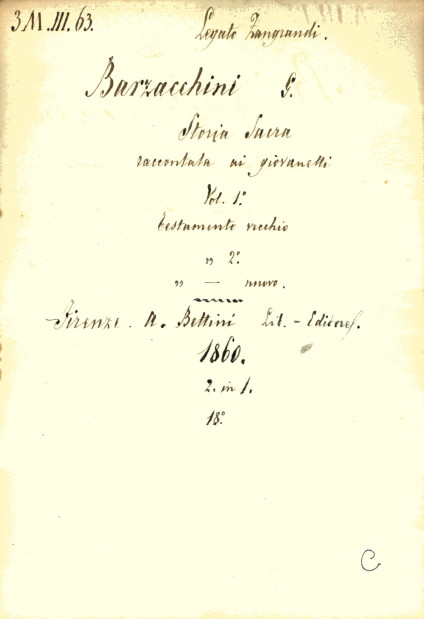 3 M. III. 63. Legato Zangrandi.
Barzacchini G.
Storia Sacra
raccontata ai giovanetti
Vol. 1º
Testamento vecchio
„ 2º
„ — nuovo.
Firenze. A. Bettini Lib. - Editore.
1860.
2. in 1.
18º
C